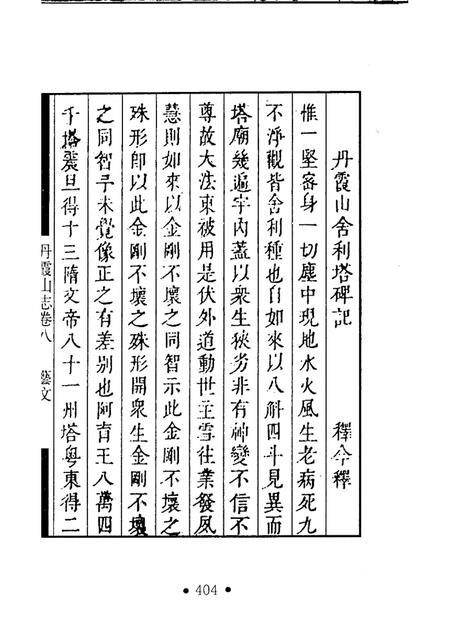 丹霞山舍利塔碑記　釋今釋
惟一堅密身一切塵中現地水火風生老病死九
不淨觀皆舍利種也自如來以八斛四斗見異而
塔廟幾遍宇內蓋以衆生狹劣非有神變不信不
尊故大法東被用是伏外道動世主雪往業發夙
慧則如來以金剛不壞之同智示此金剛不壞之
殊形卽以此金剛不壞之殊形開衆生金剛不壞
之同智予未覺像正之有差別也阿育王八萬四
千塔震旦得十三隋文帝八十一州塔粵東得二
丹霞山志卷八　藝文
• 404 •